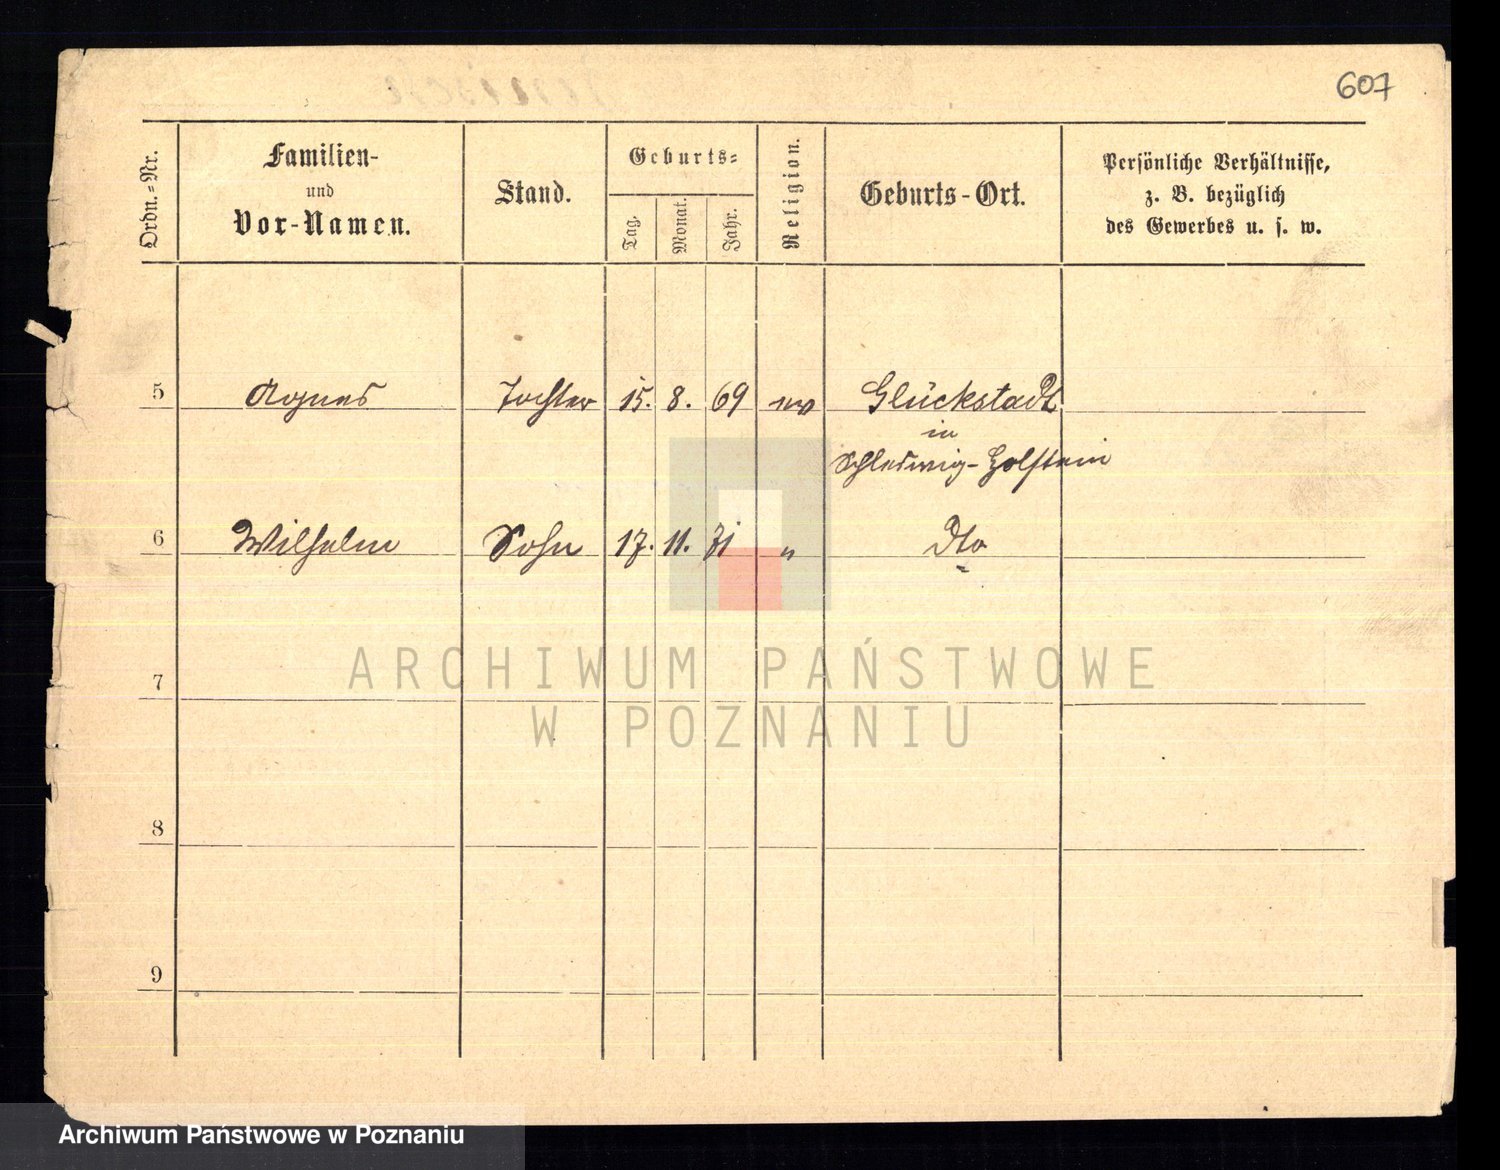 607
Ordn.-Nr.
Familien-
und
Vor-Namen.
Stand.
Geburts-
Tag.
Monat.
Jahr.
Religion.
Geburts-Ort.
Persönliche Verhältnisse,
z. B. bezüglich
des Gewerbes u. s. w.
5 Agnes Tochter 15. 8. 69 ev Glückstadt
in
Schleswig-Holstein
6 Wilhelm Sohn 17. 11. 71 " Dto
7
8
9
ARCHIWUM PAŃSTWOWE
W POZNANIU
Archiwum Państwowe w Poznaniu